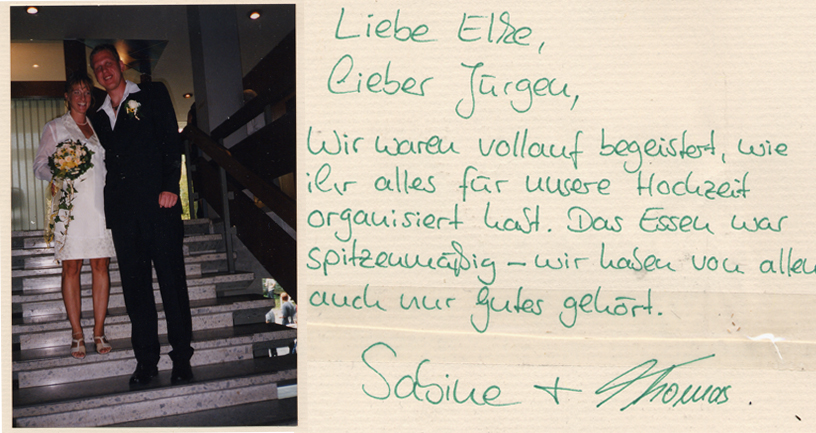 Liebe Elke,
lieber Jürgen,
Wir waren vollauf begeistert, wie
ihr alles für unsere Hochzeit
organisiert habt. Das Essen war
spitzenmäßig – wir haben von allen
auch nur Gutes gehört.
Sabine + Thomas.